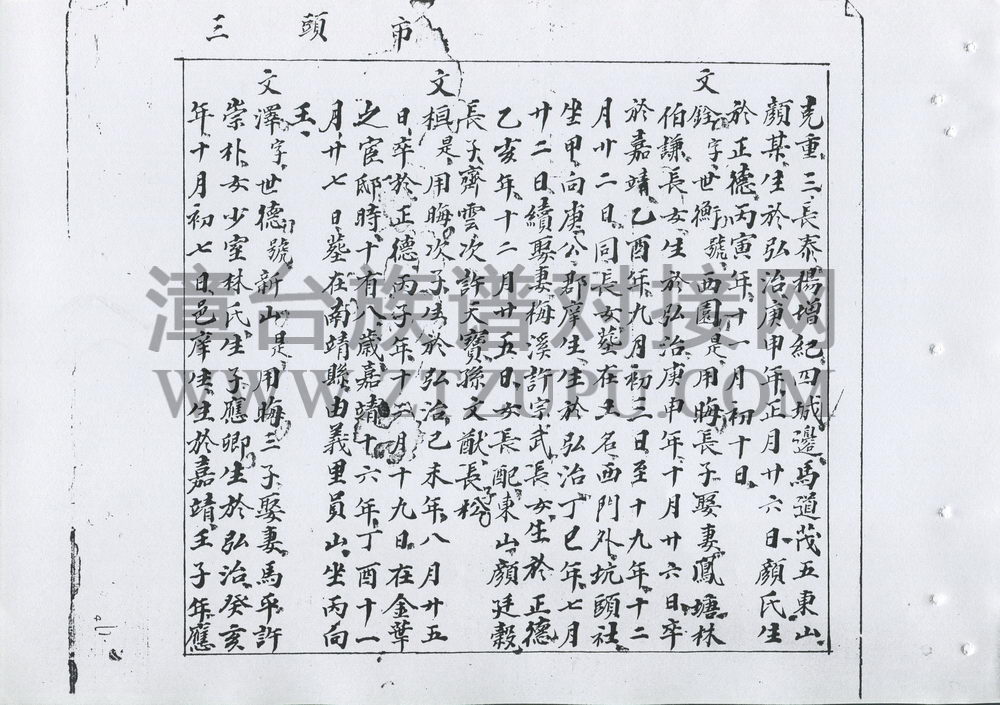 市頭三
克重三長泰楊增紀四城邊馬道茂五東山
顏某生於弘治庚申年正月廿六日顏氏生
於正德丙寅年十一月初十日
文銓字世衡號西園是用晦長子娶妻鳳塘林
伯謙長女生於弘治庚申年十月廿六日卒
於嘉靖乙酉年九月初三日至十九年十二
月廿二日同長女墓在土名西門外坑頭社
坐甲向庚公郡庠生生於弘治丁巳年七月
廿二日續娶妻梅溪許宇武長女生於正德
乙亥年十二月廿五日女長配東山顏廷穀
長子齊雲次許天寶孫文猷長子松
文槙是用晦次子生於弘治己未年八月廿五
日卒於正德丙子年十二月十九日在金華
之宦邸時十有八歲嘉靖十六年丁酉十一
月廿七日墓在南靖縣由義里員山坐丙向
壬
文澤字世德號新山是用晦三子娶妻馬平許
崇朴女少室林氏生子應卿生於弘治癸亥
年十月初七日邑庠生生於嘉靖壬子年應
漳台族谱对接网
WWW.ZTZUPU.COM